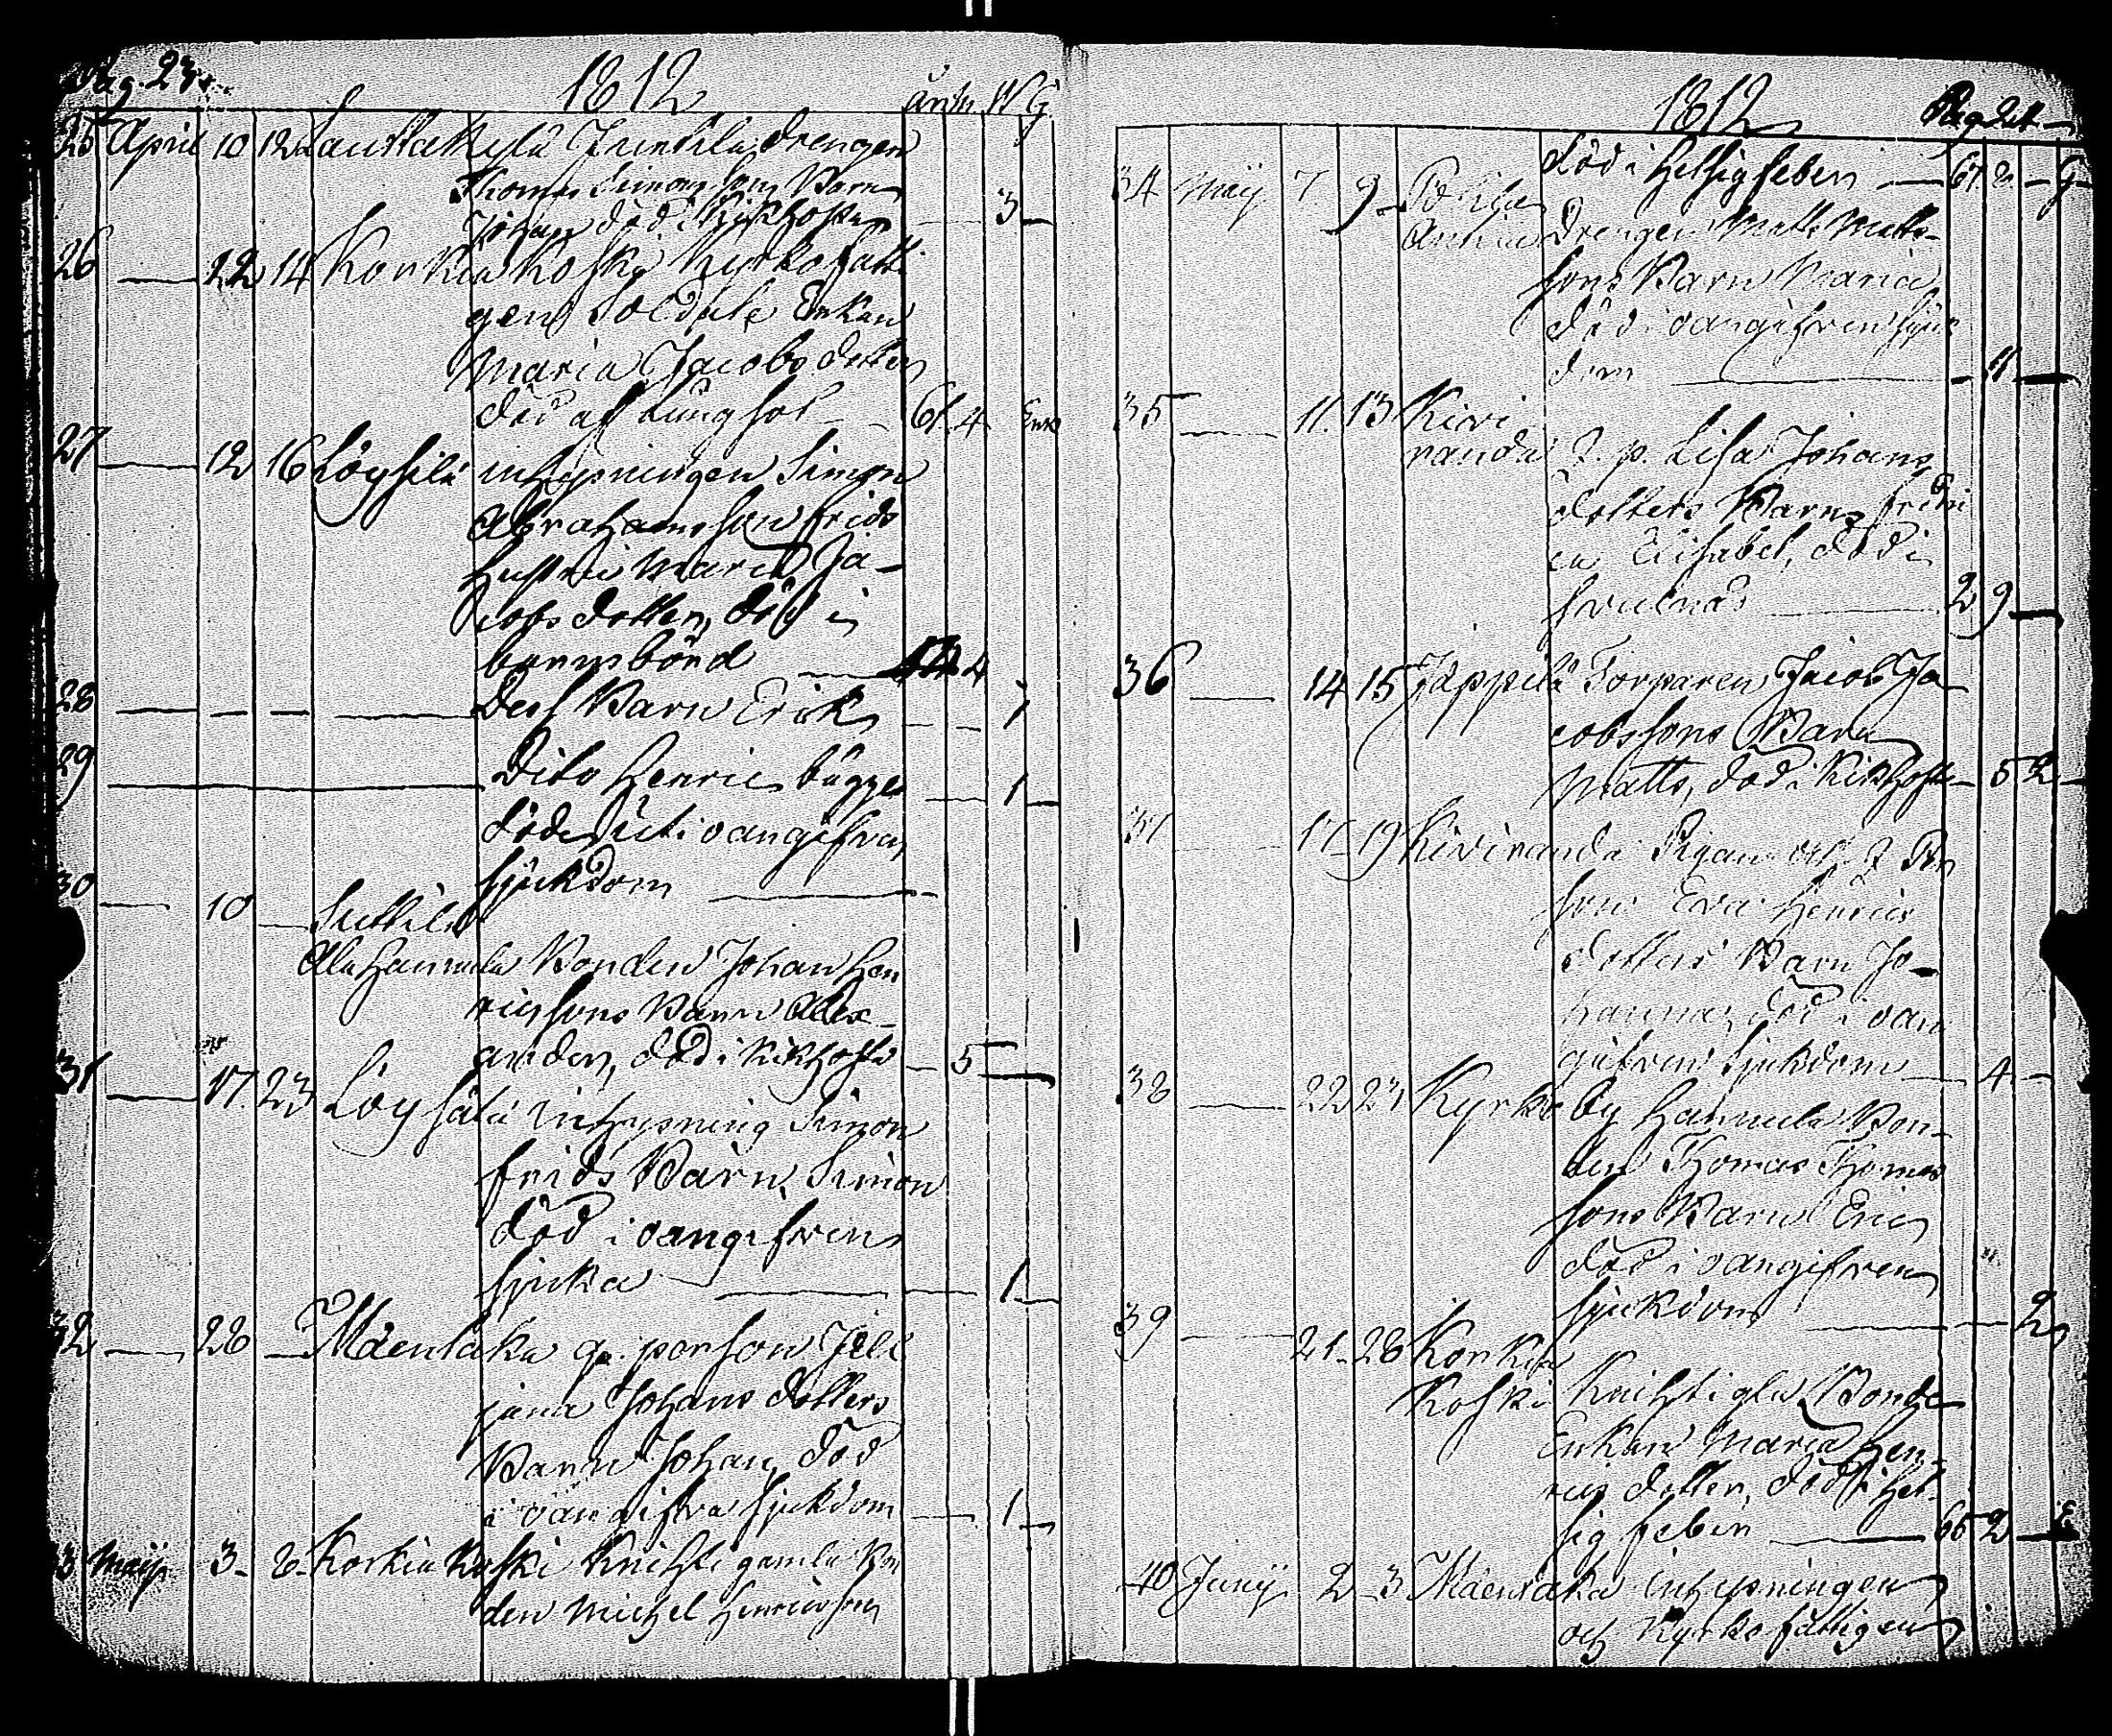 Pag. 23.
1812
år. M. W. G.
25 April 10 12 Lauttakylä Junttila drengen
Thomas Simonssons Barn
Johan död i Kikhosta 3
26 12 14 Korkiakoski Kyrkofatti
gen Soldats Enkan
Maria Jacobsdotter
död af lungsot 61. 4 Enk
27 12 16 Löysilä inhysningen Simon
Abrahamsson frids
hustru Maria Ja-
cobsdotter, död i
barnsbörd 4
28 Dess Barn Erik 1
29 Dito Henric bägge 1
döde uti oangifven
sjukdom
30 10 Suttila
Alahannula Bonden Johan Hen
ricssons Barn Alex-
ander, död i Kikhosta 5
31 17. 23 Löysälä Inhysning Simon
frids Barn Simon
död i oangifven
sjuka 1
32 28 Mäentaka q. person Juli
jana Johansdotters
Barn Johan, död
i oangifva sjukdom 1
3 Maij 3 8 Korkiakoski Knihti gamla Bon
den Michel Henricsson
1812
Pag 24
död i hetsig feber 67. 8. G
34 Maij 7 9 Pohja
Anttila Drengen Matts Matts-
sons Barn Maria
död i oangifven sjuk
dom 11
35 11. 13 Kivi
randa q. p. Lisa Johans
dotters Barn Fredri
ca Elisabet, död i
2 9
36 14 15 Jäppilä Torparen Jacob Ja
cobssons Barn
Matts, död i Kikhosta 5 2
37 17 19 Kiviranda Pigan och q Per
son Eva Henrics
dotters Barn Jo-
hanna, död i oan
gifven sjukdom 4
38 22 23 Kyrkoby Hannula Bon-
den Thomas Thomas
sons Barn Eric
död i oangifven
sjukdom 2
39 21 28 Korkia
Koski Knihti gla Bonde
Enkan Maria Hen-
rics dotter, död i het-
sig feber 66 2 E
40 Junij 2 3 Mäentaka inhysningen
och Kyrkofattigen